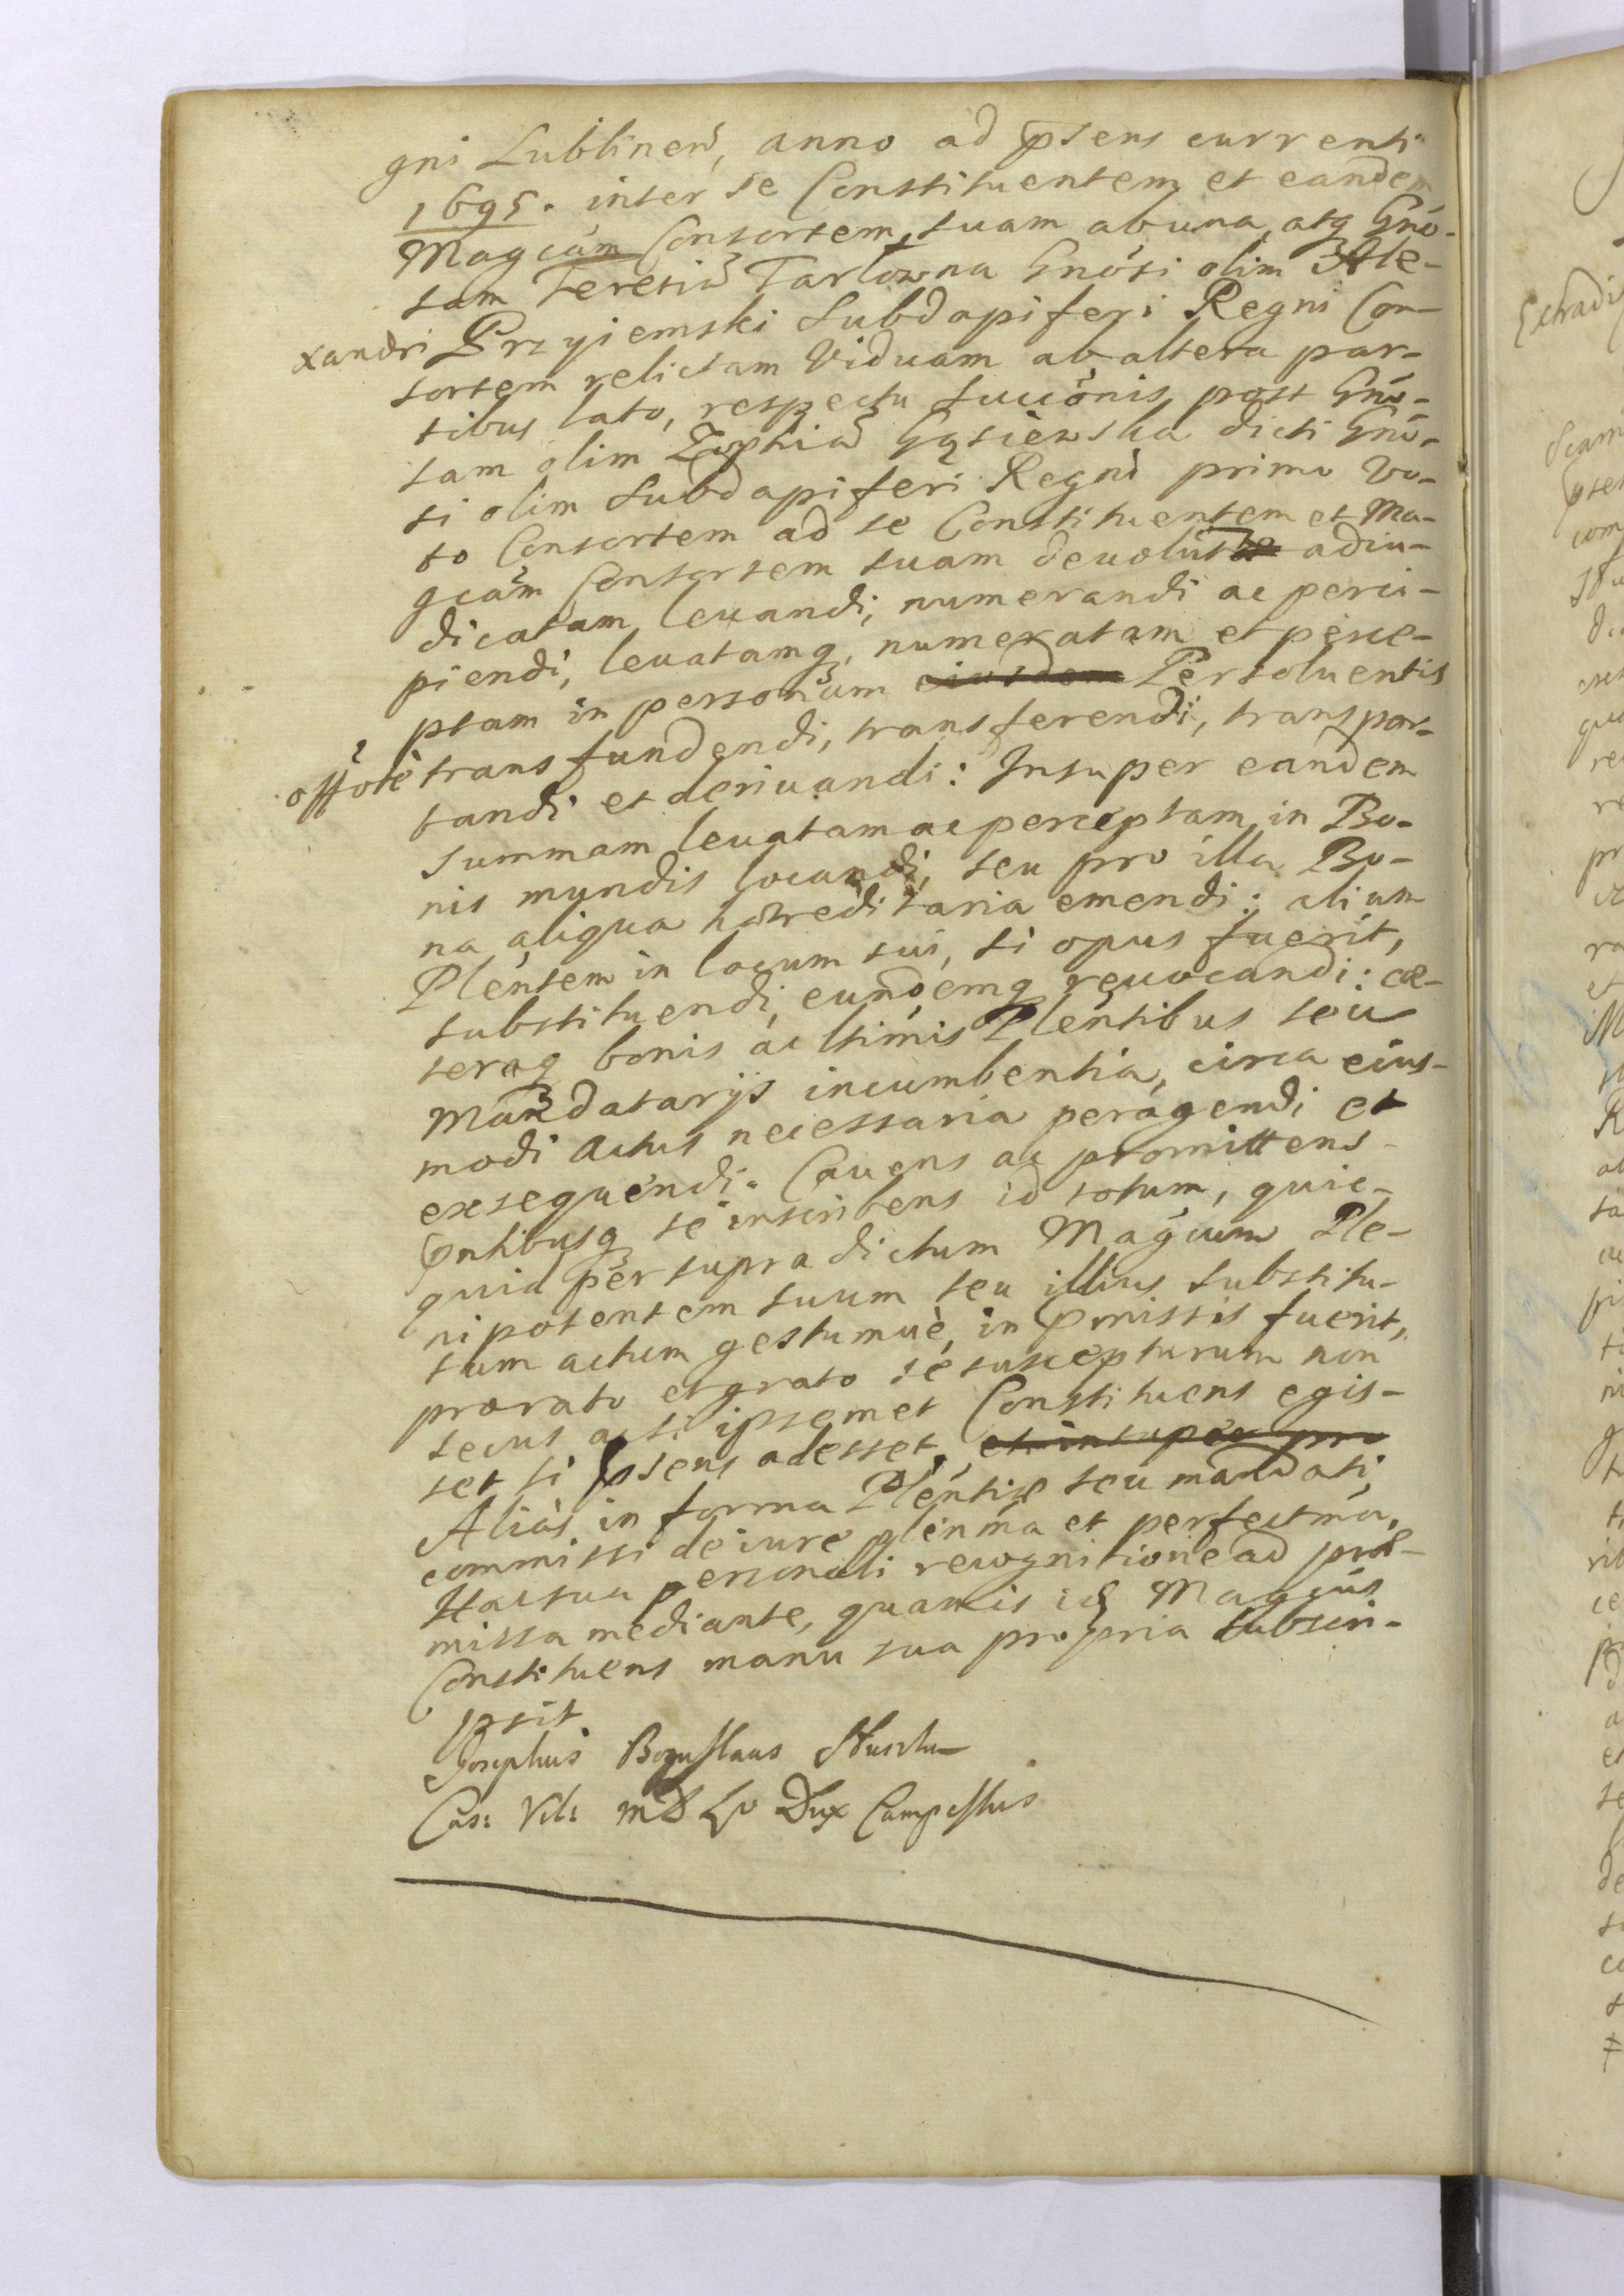 gni Lublinen̄, anno ad p̄sens currenti
1695. inter se Constituentem et eandem
Magcám Consortem suam ab una, atq Gnó-
sam Teresiā Tarłowna Gnósi olim Ale-
xandri Przyiemski Subdapiferi Regni Con-
sortem relictam Viduam ab altera par-
tibus lato, respectu succónis post Gnó-
sam olim Zophiā Gąsiewska dicti Gnó-
si olim Subdapiferi Regni primo vo-
to Consortem ad se Constituentem et Ma-
gcám Consortem suam deuolut adiu-
dicatam leuandi, numerandi ac perci-
piendi, leuatamq, numeratam et perce-
ptam in personam eiusdem Persoluentis
transfundendi, transferendi, transpor-
tandi et deriuandi: Insuper eandem
summam leuatam ac perceptam in Bo-
nis mundis locandi, seu pro illa Bo-
na aliqua hæreditaria emendi: alium
Pleñtem in locum sui, si opus fuerit,
substituendi, eundemq reuocandi: cæ-
teraq bonis ac ltimis Pleñtibus seu
Mandatarijs incumbentia, circa eius-
modi actus necessaria peragendi et
exsequendi. Cauens ac promittens
p̄ntibusq se inscribens id totum, quic-
quid per supradictum Magcum Ple-
nipotentem suum seu illius substitu-
tum actum gestumuè in p̄missis fuerit,
pro rato et grato se suscepturum non
secus ac si ipsemet Constituens egis-
set si p̄sens adesset, et insuper pro
Aliàs in forma Pleńtiæ seu mandati
commissi de iure pleńma et perfectma,
Hac sua personali recognitione ad præ-
missa mediante, quamuis id Magcus
Constituens manu sua propria subscri-
psit.
Josephus Boguslaus Sluschka
Cas: Vil: MDL Dux Campestris